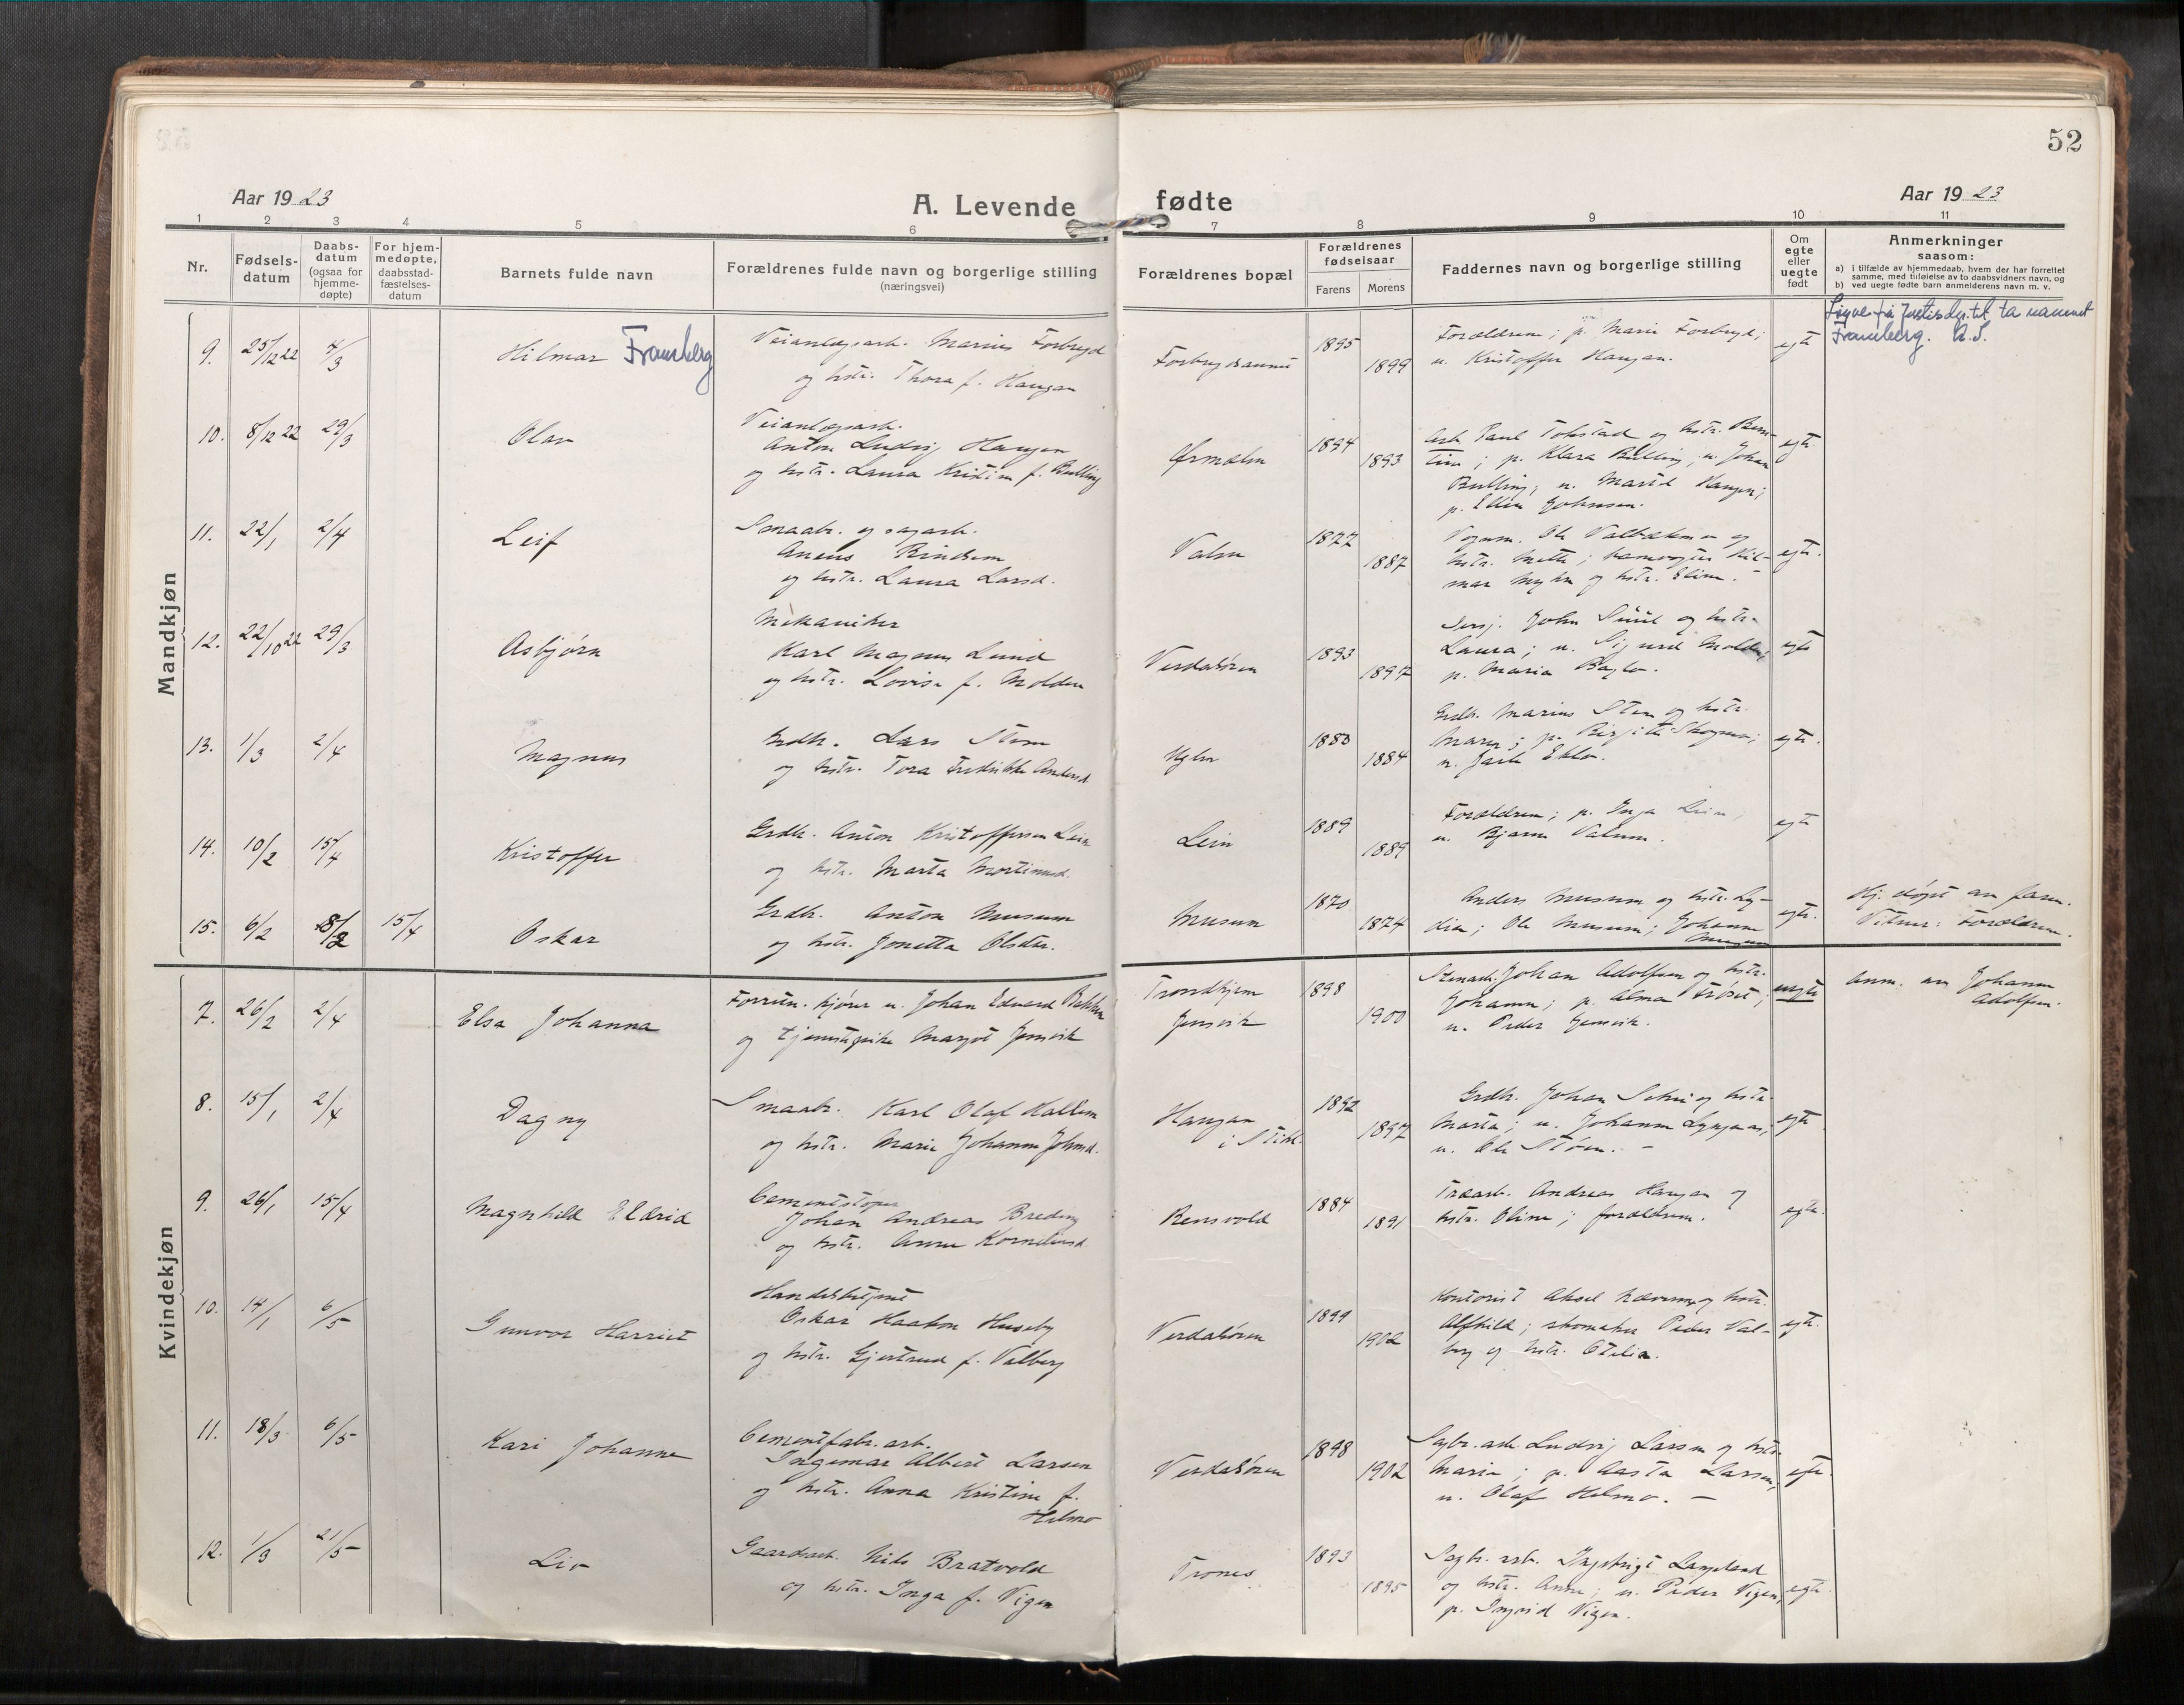 52
Aar 1923
A. Levende fødte
Aar 1923
1 2 3 4 5 6 7 8 9 10 11
Nr.
Fødsels-
datum
Daabs-
datum
(ogsaa for
hjemme-
døpte)
For hjem-
medøpte,
daabsstad-
fæstelses-
datum
Barnets fulde navn
Forældrenes fulde navn og borgerlige stilling
(næringsvei)
Forældrenes bopæl
Forældrenes
fødselsaar
Farens Morens
Faddernes navn og borgerlige stilling
Om
egte
eller
uegte
født
Anmerkninger
saasom:
a) i tilfælde av hjemmedaab, hvem der har forrettet
samme, med tilføielse av to daabsvidners navn, og
b) ved uegte fødte barn anmelderens navn m. v.
Mandkjøn
9. 25/12 22 4/3
Hilmar Framberg
Veianlægsarb. Marius Forbregd
og hstr. Thora f. Haugan
1895
1899
Forældrene; p. Marie Forbregd;
u. Kristoffer Haugan.
egte
til ta navnet
Framberg.
10. 8/12 22 29/3
Olav
Veianlægsarb.
Anton Ludvig Haugan
og hstr. Laura Kristine f. Bulling
Ørmelen
1894
1893
Arb. Paul Tokstad og hstr. Bern-
tine; p. Klara Bulling; u. Johan
Bulling; u. Marid Haugen;
p. Ellen Johnsen.
egte
11. 22/1 2/4
Leif
Smaabr. og sagarb.
Aneus Rindsem
og hstr. Laura Larsd.
Valen
1877
1887
Vognm. Ole Valbekmo og
hstr. Mette; Hil-
mar Myhr og hstr. Eline.
egte.
12. 22/10 22 29/3
Asbjørn
Mekaniker
Karl Magnus Lund
og hstr. Lovise f. Molden
Verdalsøren
1893
1897
Sersj. John Suul og hstr.
Laura; u. Sigurd Molden;
p. Maria Baglo.
egte
13. 1/3 2/4
Magnus
Grdbr. Lars Stene
og hstr. Tora Fredrikke Andersd.
1883
1884
Grdbr. Marius Stene og hstr.
Maren; p. Birgitte Skogmo;
u. Jarle Eklo.
egte.
14. 10/2 15/4
Kristoffer
Grdbr. Anton Kristoffersen Lein
og hstr. Marta Mortinusd.
Lein
1889
1889
Forældrene; p. Inga Lein;
u. Bjarne Valum.
egte
15. 6/2 18/2 15/4
Oskar
Grdbr. Anton Musum
og hstr. Jonetta Olsdtr.
Musum
1870
1874
Anders Musum og hstr. Ly-
dia; Ole Musum; Johanne
Musum
egte.
Hj. døpt av faren.
Vitner: Forældrene.
Kvindekjøn
7. 26/2 2/4
Elsa Johanna
Forretn. kjører u. Johan Edvard Bakken
og tjenestepike Margot Jermvik
Trondhjem
1898
1900
Stenarb. Johan Adolfsen og hstr.
Johanna; p. Alma Frøset;
u. Peder
uegte
Anm. av Johanna
Adolfsen.
8. 15/1 2/4
Dagny
Smaabr. Karl Olaf Hallem
og hstr. Marie Johanna Johnsd.
Haugan
i Stikl.
1892
1897
Grdbr. Johan Sehm og hstr.
Marta; u. Johannes Lyngaas;
u. Ole Støen.
egte
9. 26/1 15/4
Magnhild Eldrid
Cementstøper
Johan Andreas Breding
og hstr. Anna Korneliusd.
Rensvold
1884
1891
Træarb. Andreas Haugan og
hstr. Oline; forældrene.
egte.
10. 14/1 6/5
Gunvor Harriet
Handelsbetjent
Oskar Haakon Huseby
og hstr. Gjertrud f. Valberg
Verdalsøren
1899
1902
Kontorist Aksel Kværnmo og hstr.
Alfhild; skomaker Peder Val-
berg og hstr. Otelia.
egte.
11. 18/3 6/5
Kari Johanne
Cementfabr. arb.
Ingemar Albert Larsen
og hstr. Anna Kristine f.
Helmo
Verdalsøren
1898
1902
Sagbr. arb. Ludvig Larsen og hstr.
Marie; p. Aasta Larsen;
u. Olaf Helmo.
egte.
12. 1/3 21/5
Liv
Gaardsarb. Nils Bratvold
og hstr. Inga f. Vigen
Trones
1893
1895
Sagbr. arb. Ingebrigt Langeland
og hstr. Anna; u. Peder Vigen;
p. Ingrid Vigen.
egte.